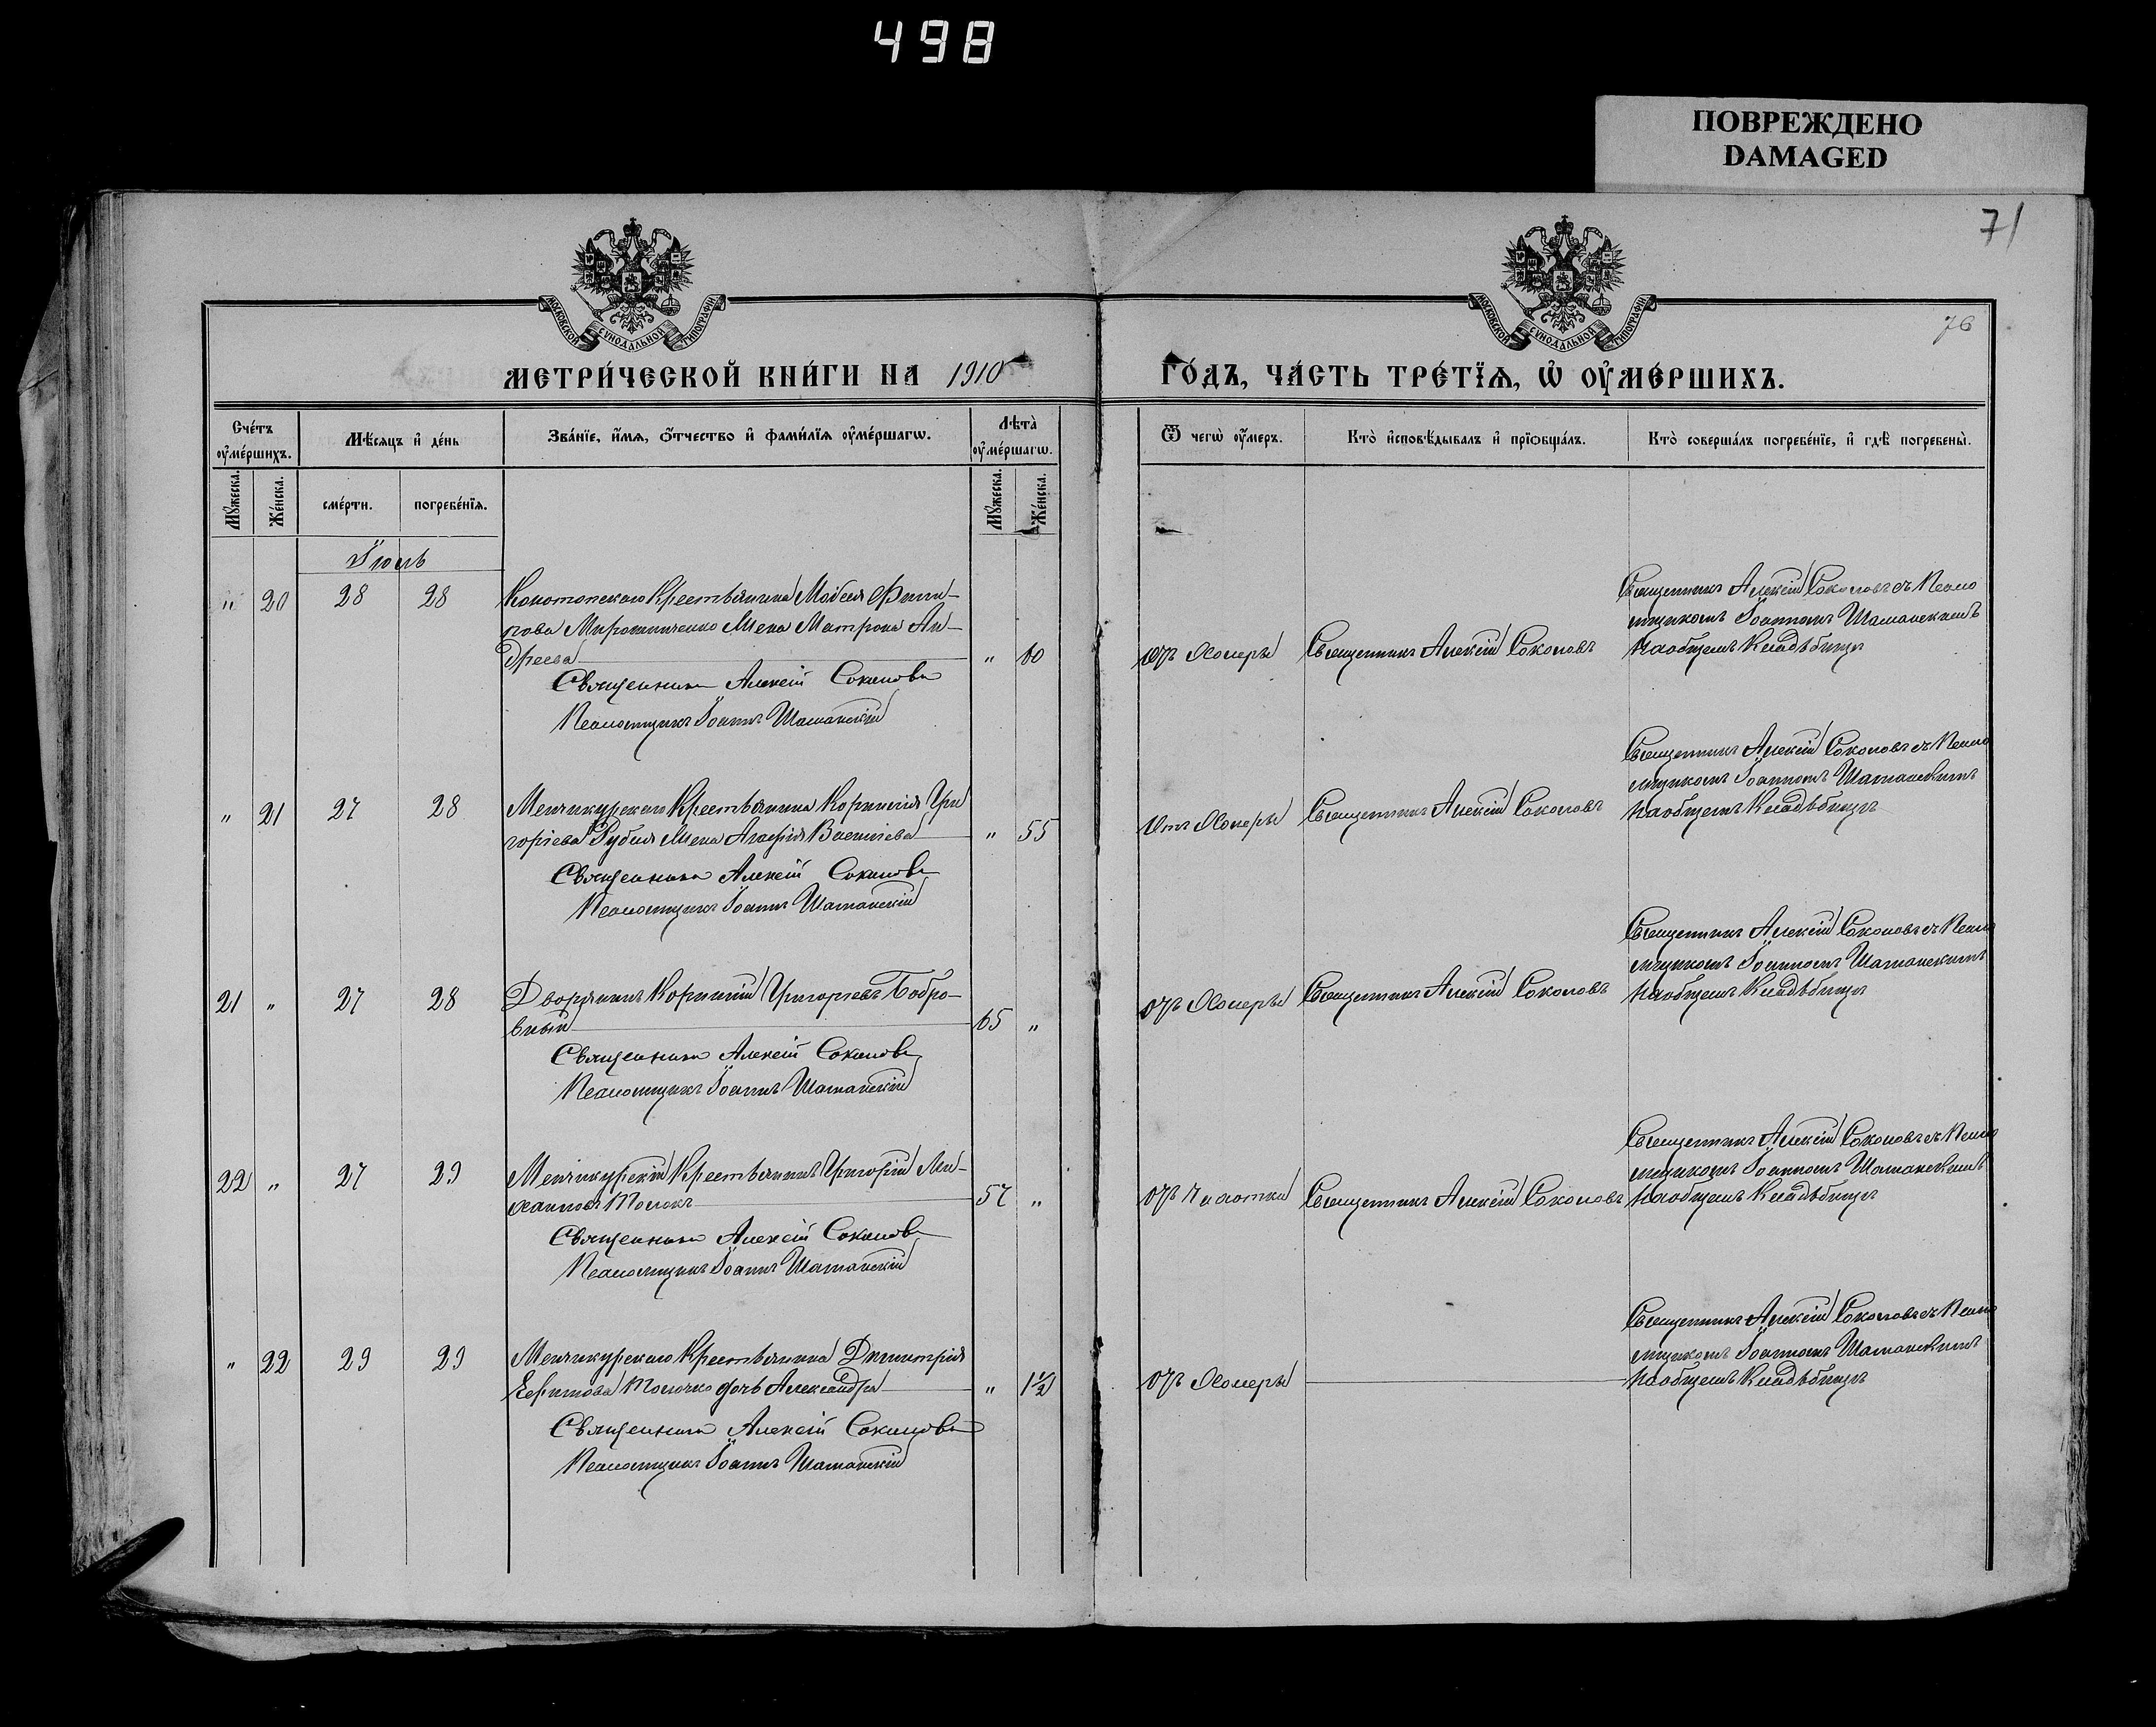 498
ПОВРЕЖДЕНО
DAMAGED
71
76
МОСКОВСКОЙ СѴНОДАЛЬНОЙ ТИПОГРАФІИ
МОСКОВСКОЙ СѴНОДАЛЬНОЙ ТИПОГРАФІИ
МЕТРИ́ЧЕСКОЙ КНИ́ГИ НА 1910 ГО́ДЪ, ЧА́СТЬ ТРЕ́ТЇѦ, Ѡ҆ ОУ҆МЕ́РШИХЪ.
Сче́тъ оу҆ме́ршихъ.
Мѣ́сяцъ и҆ де́нь
Зва́нїе, и҆́мя, ѻ҆́тчество и҆ фами́лїя оу҆ме́ршагѡ.
Лѣ́та̀ оу҆ме́ршагѡ.
Ѿ чегѡ̀ оу҆́меръ.
Кто̀ и҆сповѣ́дывалъ и҆ прїѡбща́лъ.
Кто̀ соверша́лъ погребе́нїе, и҆ гдѣ̀ погребены̀.
Мꙋ́жеска.
Же́нска.
сме́рти.
погребе́нїя.
Мꙋ́жеска.
Же́нска.
Іюль
" 20 28 28 Конотопскаго Крестьянина Мойсея Фили-
пова Мирошниченко Жена Матрона Ан-
дреева " 60
Священникъ Алексій Соколовъ
Псаломщикъ Іоаннъ Шатанскій
Отъ Холеры Священникъ Алексій Соколовъ
Священникъ Алексій Соколовъ съ Псало
мщикомъ Іоанномъ Шатанскимъ
На общемъ Кладьбищѣ
" 21 27 28 Менчикурскаго Крестьянина Корнилія Гри
горіева Рубля Жена Агафія Василіева " 55
Священникъ Алексій Соколовъ
Псаломщикъ Іоаннъ Шатанскій
Отъ Холеры Священникъ Алексій Соколовъ
Священникъ Алексій Соколовъ съ Псало
мщикомъ Іоанномъ Шатанскимъ
На общемъ Кладьбищѣ
21 " 27 28 Дворянинъ Корнилій Григорьевъ Бобро-
вный 65 "
Священникъ Алексій Соколовъ
Псаломщикъ Іоаннъ Шатанскій
Отъ Холеры Священникъ Алексій Соколовъ
Священникъ Алексій Соколовъ съ Псало
мщикомъ Іоанномъ Шатанскимъ
На общемъ Кладьбищѣ
22 " 27 29 Менчикурскій Крестьянинъ Григорій Ми-
хаиловъ 57 "
Священникъ Алексій Соколовъ
Псаломщикъ Іоаннъ Шатанскій
Отъ Чахотки Священникъ Алексій Соколовъ
Священникъ Алексій Соколовъ съ Псало
мщикомъ Іоанномъ Шатанскимъ
На общемъ Кладьбищѣ
" 22 29 29 Менчикурскаго Крестьянина Димитрія
Ефимова дочь Александра " 1½
Священникъ Алексій Соколовъ
Псаломщикъ Іоаннъ Шатанскій
Отъ Холеры
Священникъ Алексій Соколовъ съ Псало
мщикомъ Іоанномъ Шатанскимъ
На общемъ Кладьбищѣ